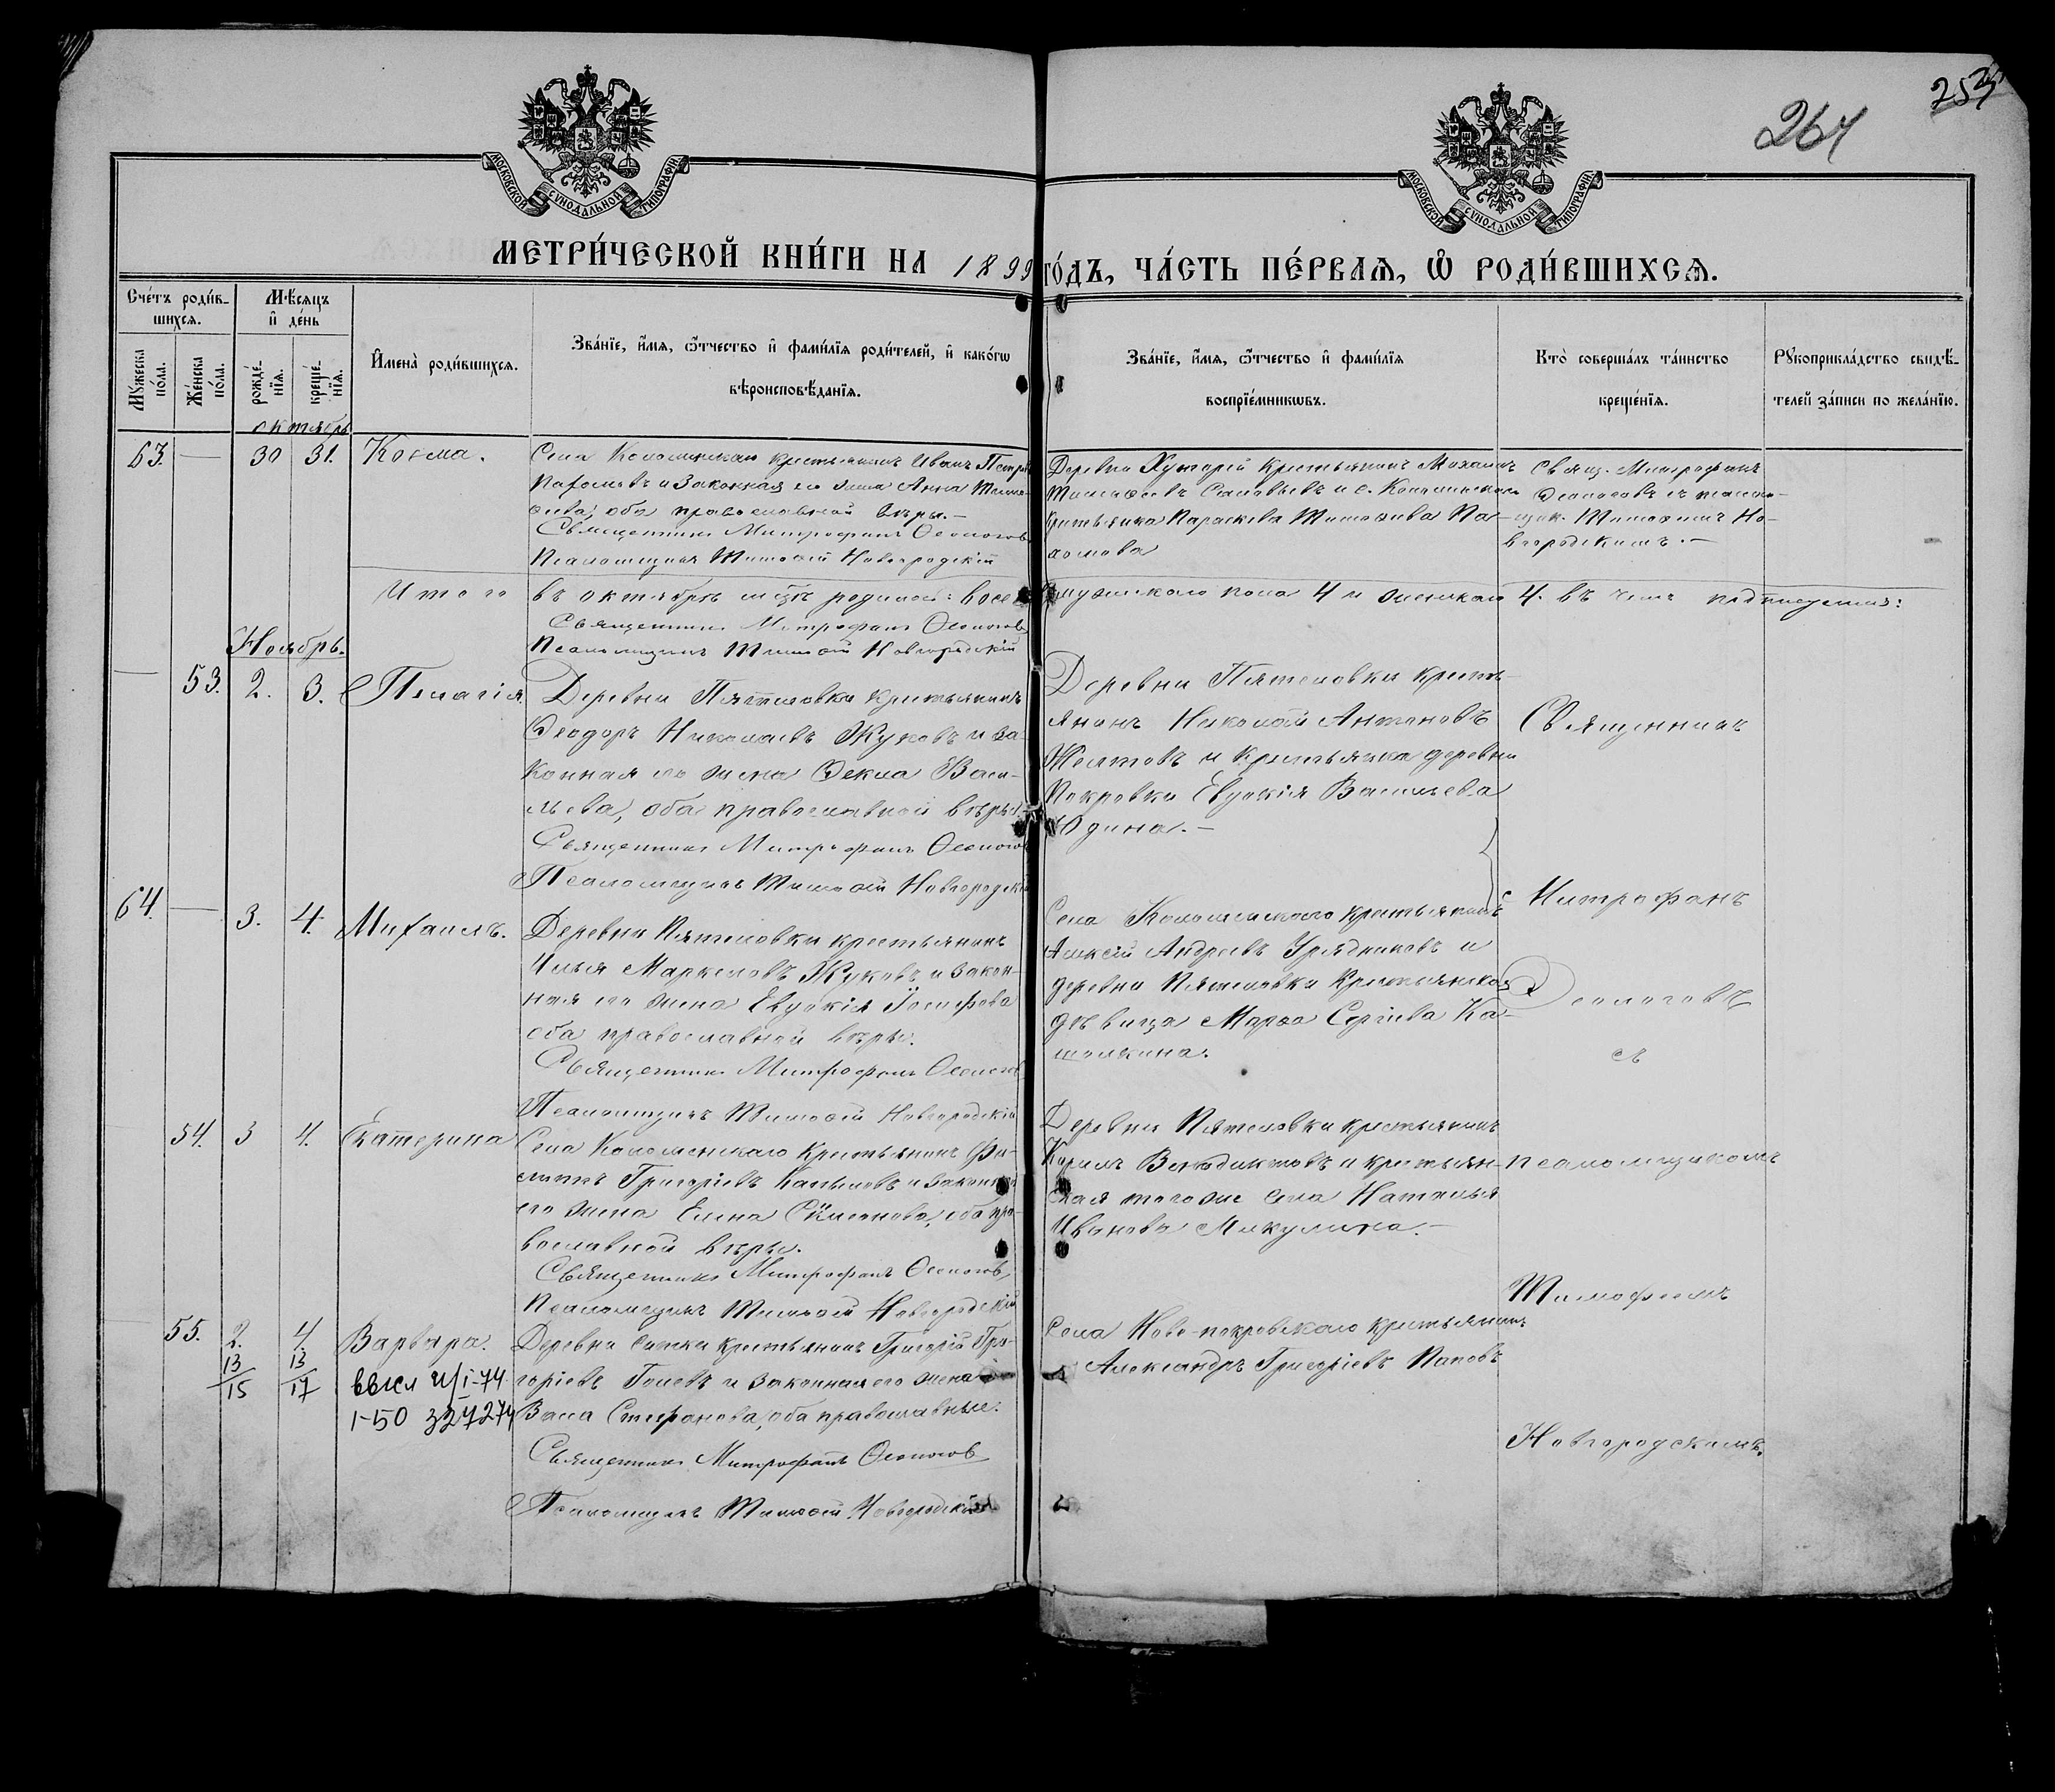 253
264
МОСКОВСКОЙ СѴНОДАЛЬНОЙ ТИПОГРАФІИ
МОСКОВСКОЙ СѴНОДАЛЬНОЙ ТИПОГРАФІИ
МЕТРИ́ЧЕСКОЙ КНИ́ГИ НА 1899 ГО́ДЪ, ЧА́СТЬ ПЕ́РВАѦ, Ѡ҆ РОДИ́ВШИХСѦ.
Сче́тъ роди́в-
шихсѧ.
Мѣ́сѧцъ
и҆ де́нь
Мꙋ́жеска по́ла.
Же́нска по́ла.
рожде́-
нїѧ.
креще́-
нїѧ.
И҆мена̀ роди́вшихсѧ.
Зва́нїе, и҆́мѧ, ѻ҆́тчество и҆ фами́лїѧ роди́телей, и҆ како́гѡ
вѣроисповѣ́данїѧ.
Зва́нїе, и҆́мѧ, ѻ҆́тчество и҆ фами́лїѧ
воспрїе́мникѡвъ.
Кто̀ соверша́лъ та́инство
креще́нїѧ.
Рꙋкоприкла́дство свидѣ́-
телей за́писи по жела́нїю.
октябрь
63. — 30 31. Косма.
Села крестьянинъ Иванъ
Пахомовъ и законная его жена Анна Тимо-
феева, оба православной вѣры. —
Священникъ Митрофанъ Ѳеологовъ
Псаломщикъ Тимоѳей Новгородскій
Деревни Хуторей крестьянинъ Михаилъ
Тимоѳеевъ Соловьевъ и с.
крестьянка Параскева Тимоѳеева Па-
хомова
Свящ. Митрофанъ
Ѳеологовъ съ псалом-
щик. Тимоѳеемъ Но-
вгородскимъ. —
Итого въ октябрѣ мцѣ родилось: восемь мужескаго пола 4 и женскаго 4. въ чемъ подписуемся:
Священникъ Митрофанъ Ѳеологовъ
Псаломщикъ Тимоѳей Новгородскій
Ноябрь.
— 53. 2. 3. Пелагія.
Деревни Пятиловки крестьянинъ
Ѳеодоръ Николаевъ Жуковъ и за-
конная его жена Ѳекла Васи-
льева, оба православной вѣры.
Священникъ Митрофанъ Ѳеологовъ
Псаломщикъ Тимоѳей Новгородскій
Деревни Пятиловки кресть-
янинъ Николай Антоновъ
Желтовъ и крестьянка деревни
Покровки Евдокія Васильева
Юдина. —
Священникъ
64. — 3. 4. Михаилъ.
Деревни Пятиловки крестьянинъ
Илья Маркеловъ Жуковъ и закон-
ная его жена Евдокія Іосифова
оба православной вѣры.
Священникъ Митрофанъ Ѳеологовъ
Псаломщикъ Тимоѳей Новгородскій
Села Коломенскаго крестьянинъ
Алексій Андреевъ Урядниковъ и
деревни Пятиловки крестьянская
дѣвица Марѳа Сергіева Ка-
шолкина.
Митрофанъ
Ѳеологовъ
съ
54. 3 4. Екатерина
Села Коломенскаго крестьянинъ Фи-
липпъ Григоріевъ и законная
его жена Елена Сѵмеонова, оба пра-
вославной вѣры.
Священникъ Митрофанъ Ѳеологовъ
Псаломщикъ Тимоѳей Новгородскій
Деревни Пятиловки крестьянинъ
и крестьян-
ская тогоже села Наталья
Иванова Микулина. —
псаломщикомъ
Тимофеемъ
55. 2. 4. Варвара.
13/15 13/17
1-50 327274
Деревни крестьянинъ Григорій Гри-
горіевъ и законная его жена
Васса Стефанова, оба православные.
Священникъ Митрофанъ Ѳеологовъ
Псаломщикъ Тимоѳей Новгородскій
Села Ново-покровскаго крестьянинъ
Александръ Григоріевъ Поповъ
Новгородскимъ.